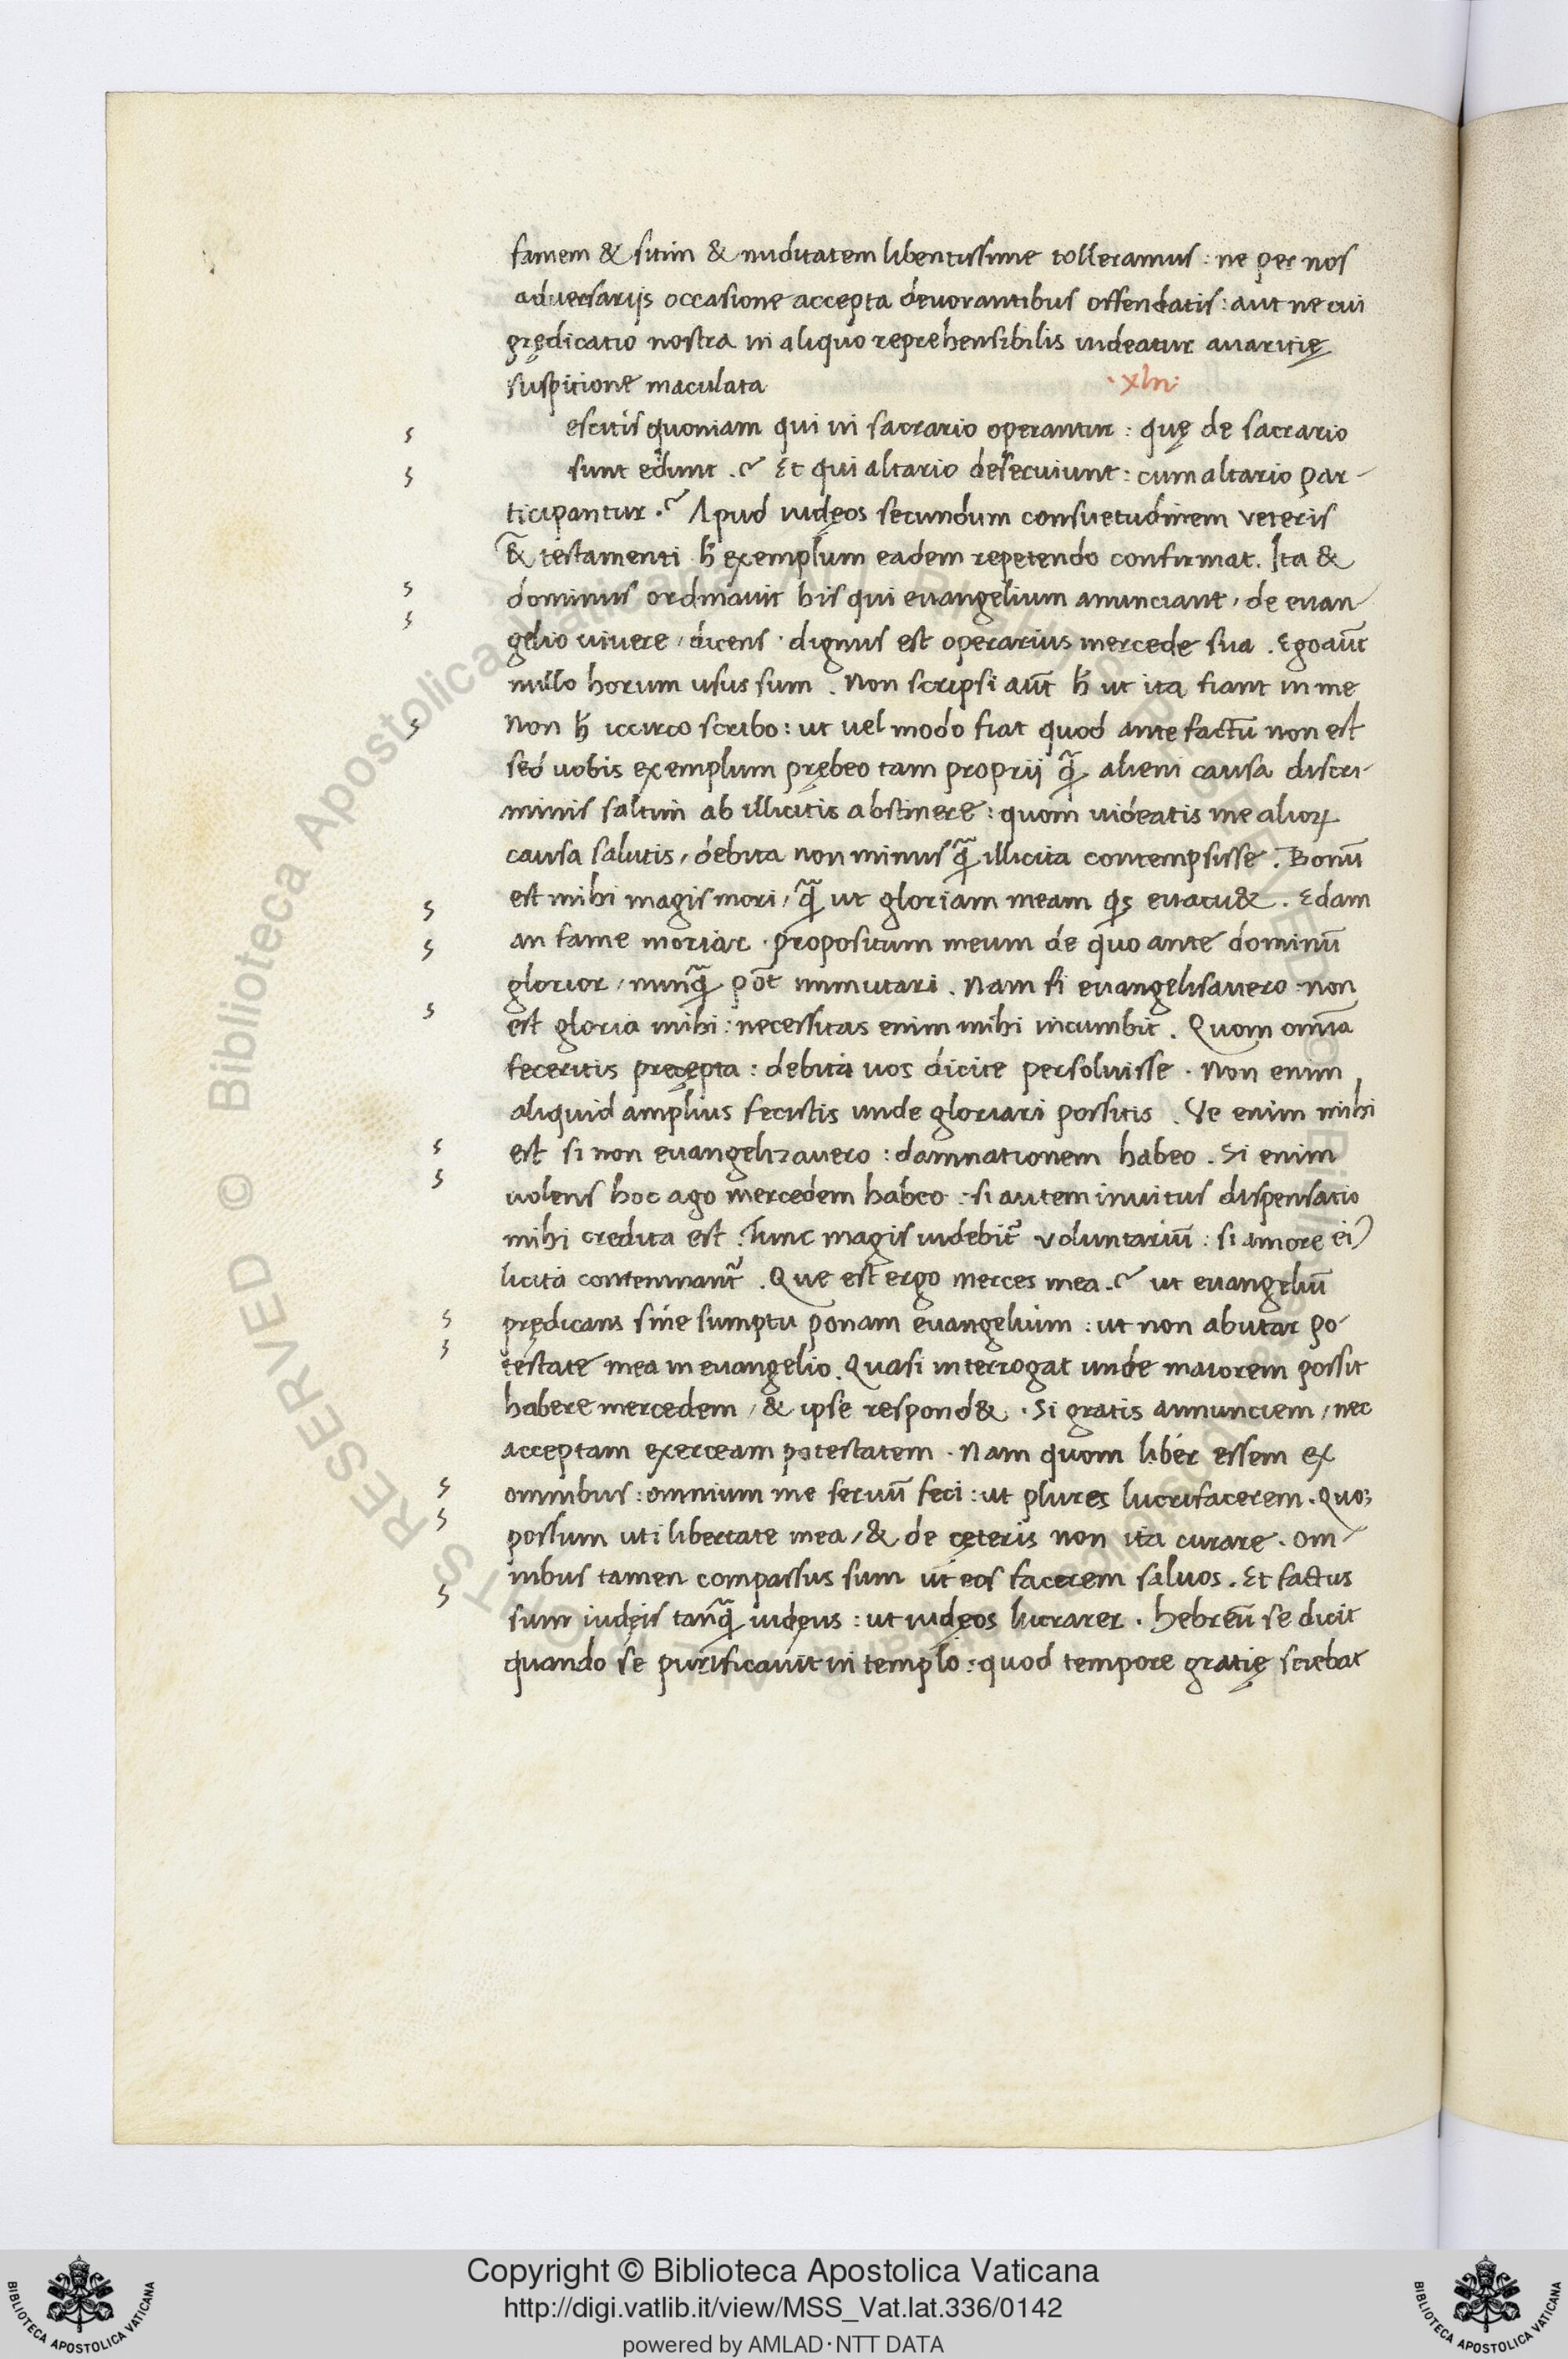 famem & sitim & nuditatem libentissime tolleramus : ne per nos
aduersarijs occasione accepta deuorantibus offendatis : aut ne cui
prędicatio nostra in aliquo reprehensibilis uideatur auaritię
suspitione maculata
escitis quoniam qui in sacrario operantur : quę de sacrario
sunt edunt . Et qui altario deseruiunt : cum altario par-
ticipantur . Apud iudęos secundum consuetudinem veteris
testamenti h̄ exemplum eadem repetendo confirmat. Ita &
dominus ordinauit his qui euangelium anunciant / de euan-
gelio uiuere / dicens · dignus est operarius mercede sua . Ego aūt
nullo horum usus sum . Non scripsi aūt h̄ ut ita fiant in me
Non h̄ iccirco scribo : ut uel modo fiat quod ante factū non est
sed uobis exemplum prębeo tam proprij q̄ alieni causa discri-
minis saltim ab illicitis abstinere : quom uideatis me alioꝝ
causa salutis / debita non minus q̄ illicita contempsisse . Bonū
est mihi magis mori / q̄ ut gloriam meam qs euacu& . Edam
an fame moriar · propositum meum de quo ante dominū
glorior / nunq̄ pōt immutari . Nam si euangelisauero non
est gloria mihi : necessitas enim mihi incumbit . Quom omīa
feceritis pręcepta : debita uos dicite persoluisse · Non enim
aliquid amplius fecistis unde gloriari possitis . Ve enim mihi
est si non euangelizauero : damnationem habeo . Si enim
uolens hoc ago mercedem habeo : si autem inuitus dispensatio
mihi credita est . Tunc magis uidebit̄ voluntariū : si amore ei
licita contemnant̄ . Que est ergo merces mea . ut euangeliū
prędicans sine sumptu ponam euangelium : ut non abutar po-
testate mea in euangelio . Quasi interrogat unde maiorem possit
habere mercedem / & ipse respond& . Si gratis annunciem / nec
acceptam exerceam potestatem . Nam quom liber essem ex
omnibus : omnium me seruū feci : ut plures lucrifacerem .
possum uti libertate mea / & de cęteris non ita curare . om-
nibus tamen compassus sum ut eos facerem saluos . Et factus
sum iudęis tanq̄ iudęus : ut iudęos lucrarer . hebreū se dicit
quando se purificauit in templo : quod tempore gratię sciebat
Copyright © Biblioteca Apostolica Vaticana
http://digi.vatlib.it/view/MSS_Vat.lat.336/0142
powered by AMLAD·NTT DATA